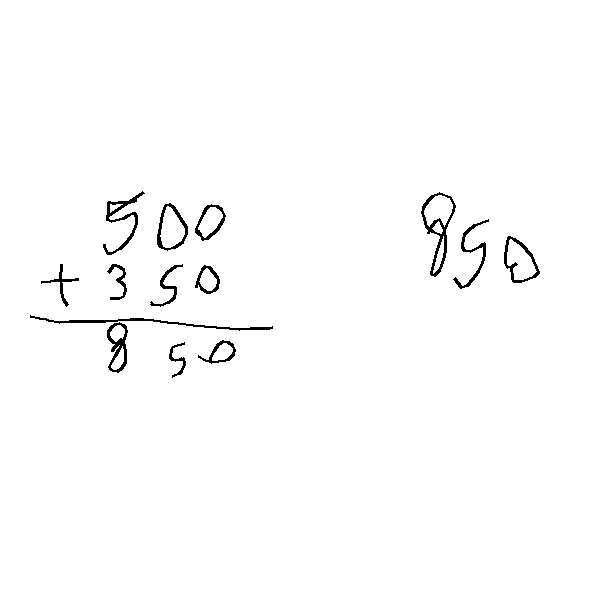 500
+ 350
850
850